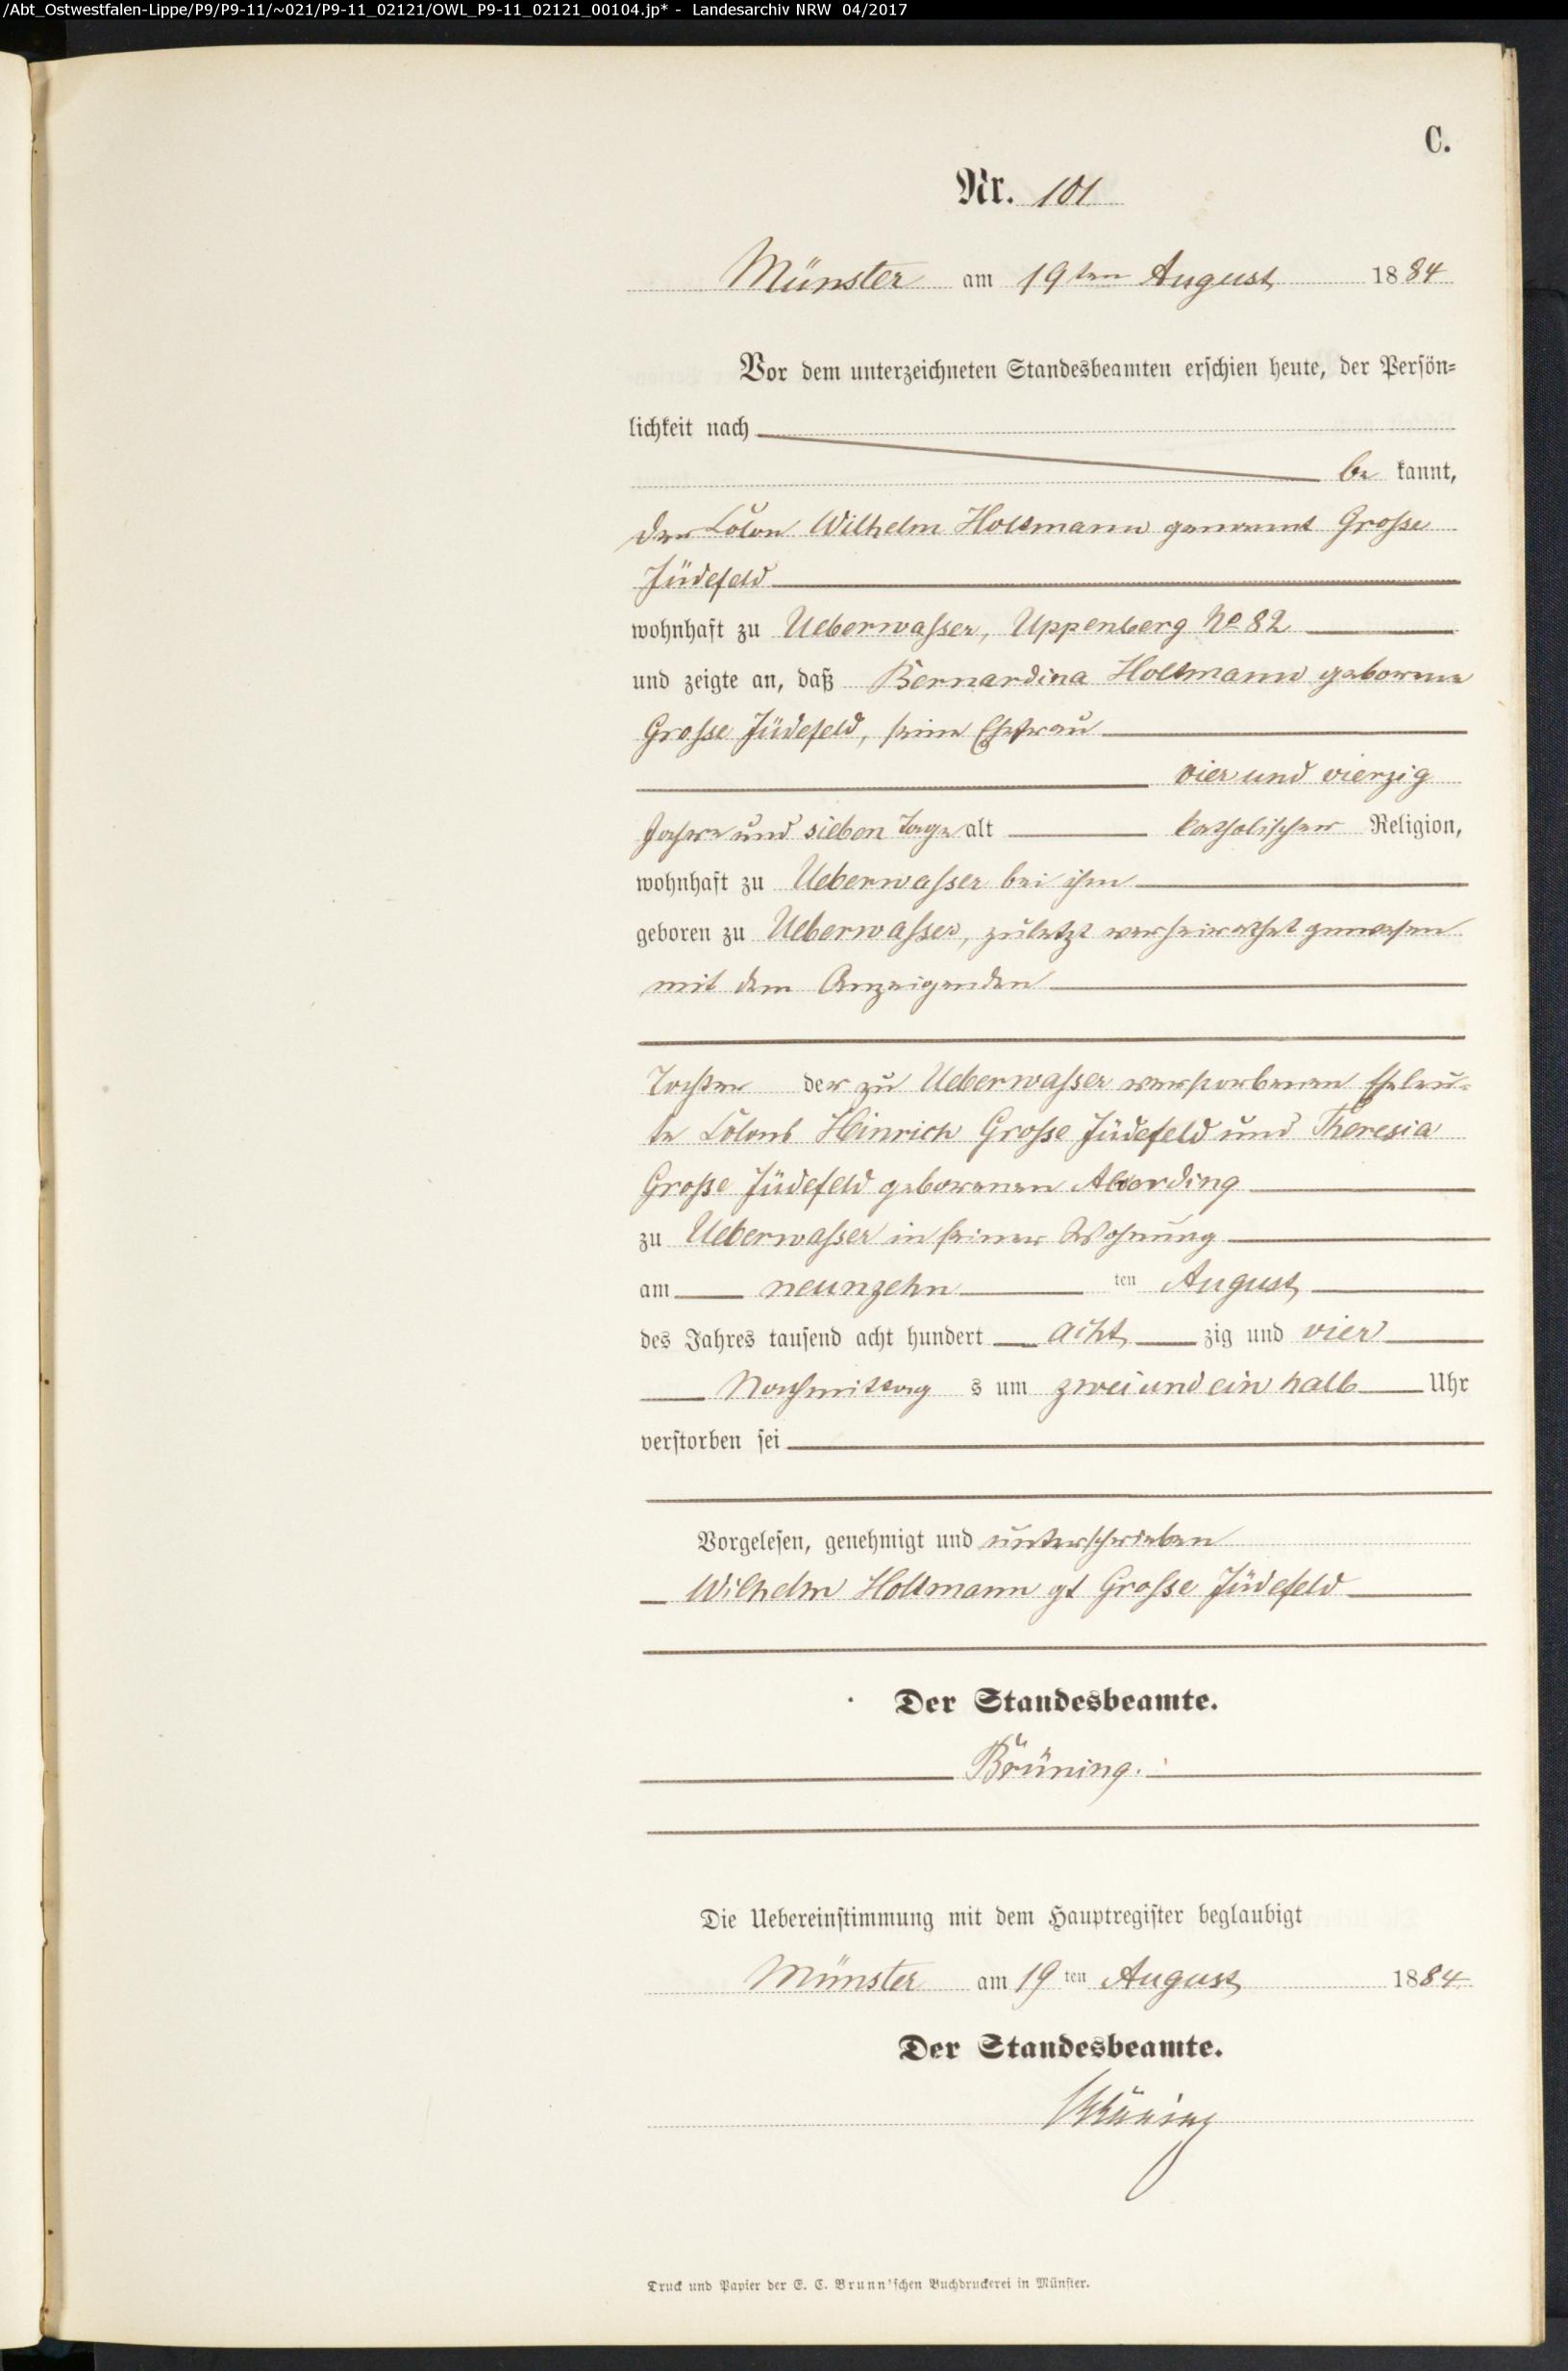 /Abt_Ostwestfalen-Lippe/P9/P9-11/~021/P9-11_02121/OWL_P9-11_02121_00104.jp* - Landesarchiv NRW 04/2017
C.
Nr. 101
Münster am 19ten August 1884
Vor dem unterzeichneten Standesbeamten erschien heute, der Persön-
lichkeit nach
be kannt,
der Colon Wilhelm Holtmann genannt Große
Jüdefeld
wohnhaft zu Ueberwasser, Uppenberg No 82
und zeigte an, daß Bernardina Holtmann geborene
Große Jüdefeld, seine Ehefrau
vier und vierzig
Jahre und sieben Tage alt katholischer Religion,
wohnhaft zu Ueberwasser bei ihm
geboren zu Ueberwasser, zuletzt verheirathet gewesen
mit dem Anzeigenden
Tochter der zu Ueberwasser verstorbenen Eheleu-
te Colons Heinrich Große Jüdefeld und Theresia
Große Jüdefeld geborenen
zu Ueberwasser in seiner Wohnung
am neunzehn ten August
des Jahres tausend acht hundert acht zig und vier
Nachmittag s um zwei und ein halb Uhr
verstorben sei
Vorgelesen, genehmigt und unterschrieben
Wilhelm Holtmann gt Große Jüdefeld
Der Standesbeamte.
Brüning.
Die Uebereinstimmung mit dem Hauptregister beglaubigt
Münster am 19 ten August 1884
Der Standesbeamte.
Brüning
Druck und Papier der E. C. Brunn'schen Buchdruckerei in Münster.